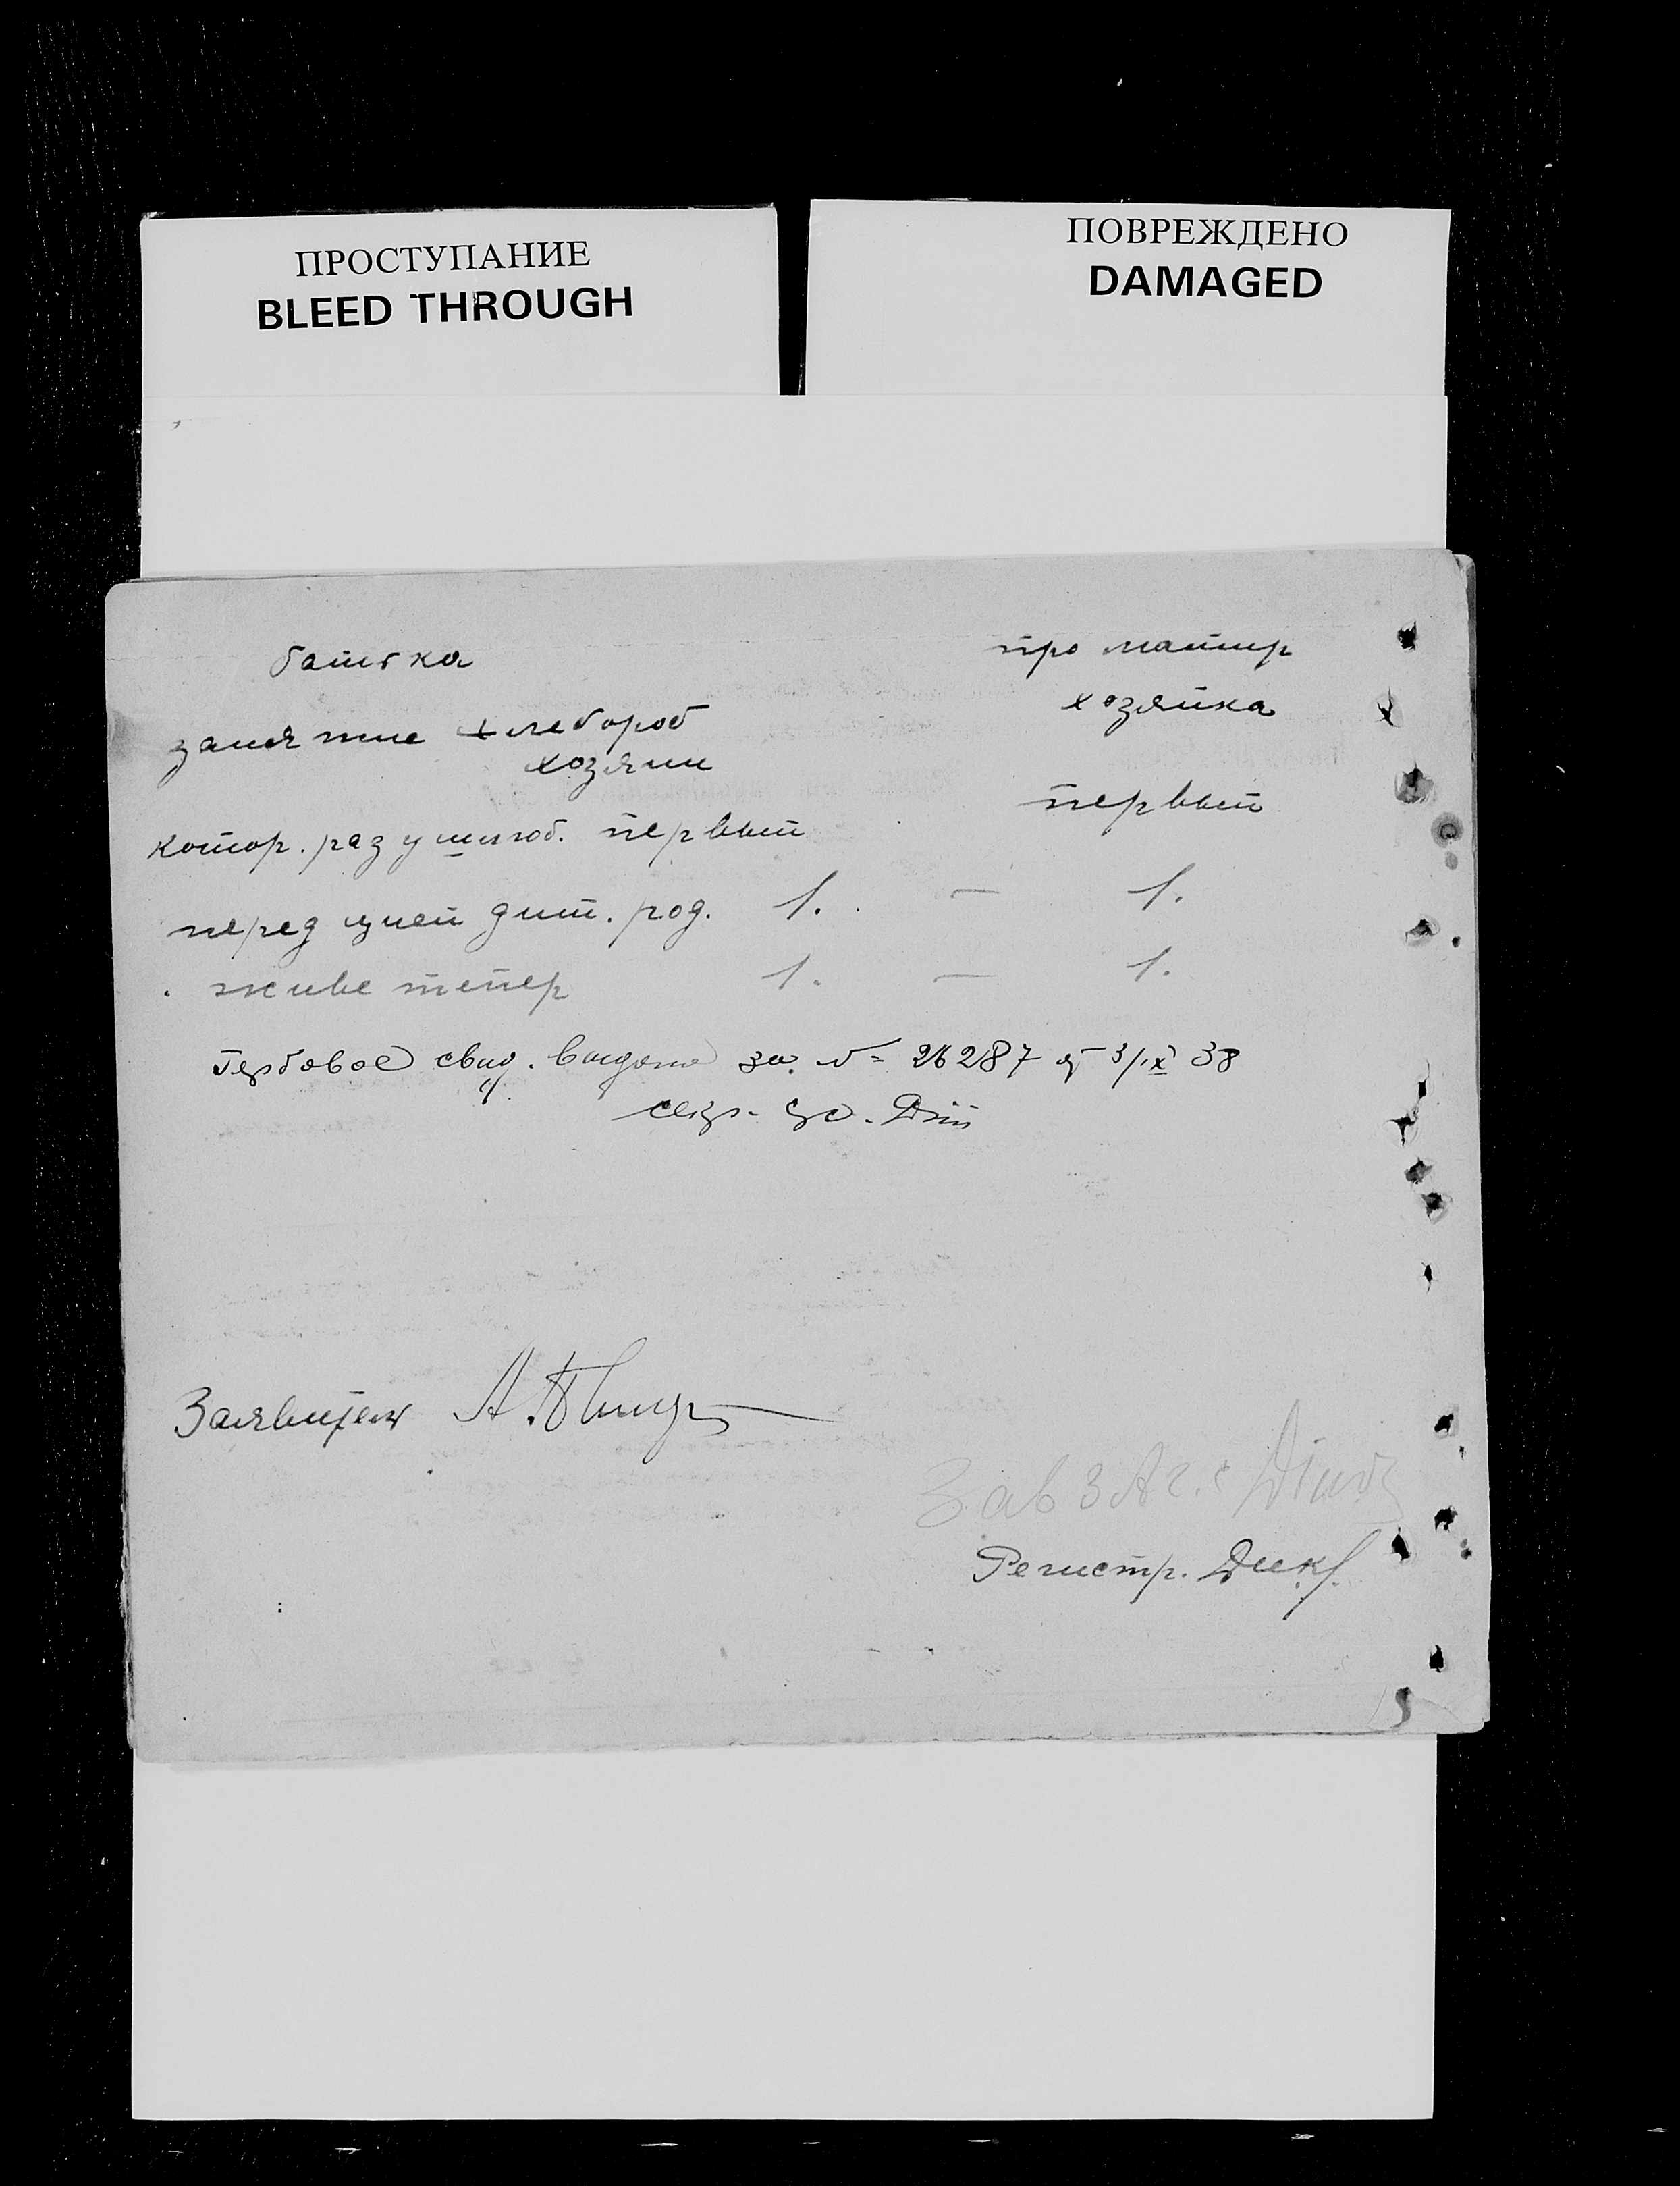 ПРОСТУПАНИЕ
BLEED THROUGH
ПОВРЕЖДЕНО
DAMAGED
батька
про матир
занятие хлебороб
хозяйка
хозяин
котор. раз у шлюб. первый
первый
перед цией дит. род. 1. — 1.
живе тепер 1. — 1.
Гербовое свид. выдано за № 26287 от 3/IX 38
Заявитель А.
Зав ЗАГС
Регистр.